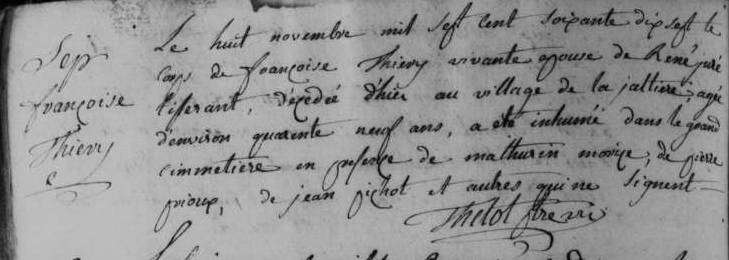 Sep
françoise
Thiery
Le huit novembre mil sept cent soixante dix sept le
corps de françoise Thiery vivante epouse de René juré
tisserant, décédée d'hier au village de la jaltiere, agée
d'environ quarente neuf ans, a eté inhumée dans le grand
cimmetiere en presence de mathurin morice, de pierre
prioux, de jean pichot et autres qui ne signent
Thelot